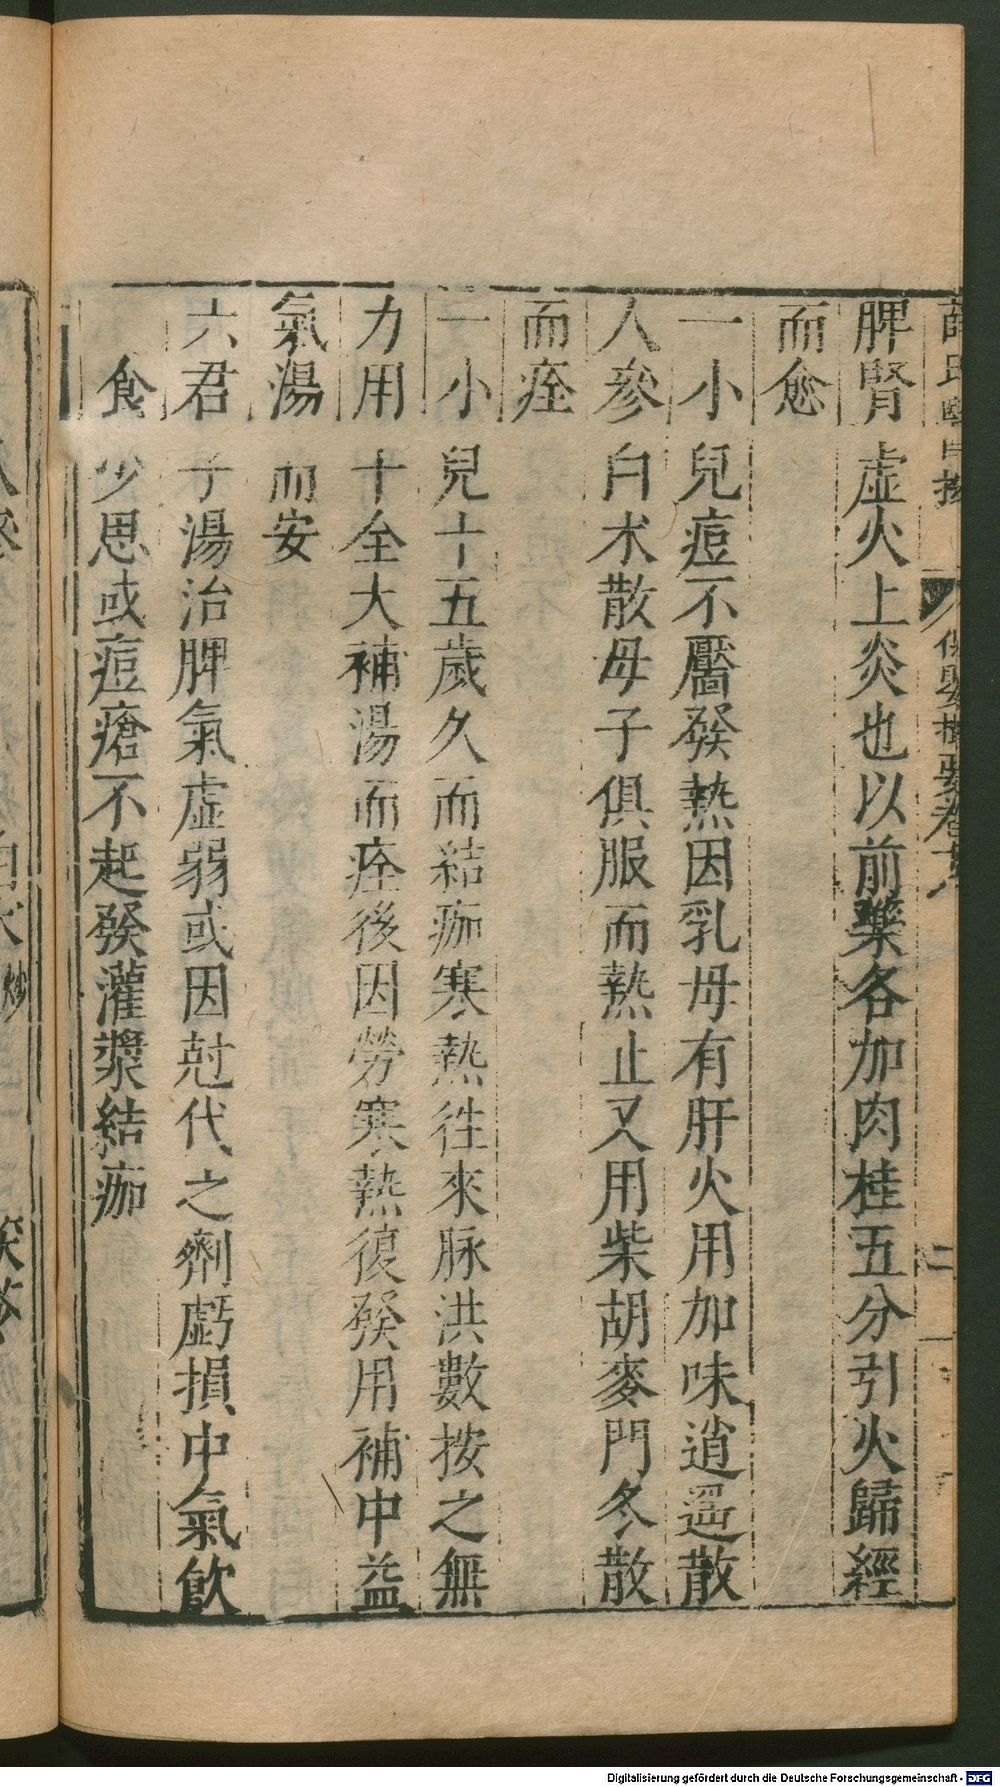 脾腎虛火上炎也以前藥各加肉桂五分引火歸經
而愈
一小兒痘不靨發熱因乳母有肝火用加味逍遥散
人參白朮散母子俱服而熱止又用柴胡麥門冬散
而痊
一小兒十五歲久而結痂寒熱徃來脉洪數按之無
力用十全大補湯而痊後因勞寒熱復發用補中益
氣湯而安
六君子湯治脾氣虛弱或因尅伐之劑虧損中氣飲
食少思或痘瘡不起發灌漿結痂
Digitalisierung gefördert durch die Deutsche Forschungsgemeinschaft - DFG